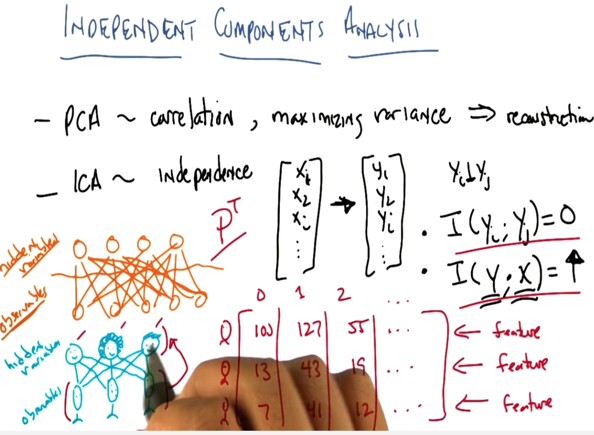 INDEPENDENT COMPONENTS ANALYSIS
- PCA ~ correlation, maximizing variance ⇒ reconstruction
- ICA ~ independence
X₁ → Y₁
X₂ Y₂
Xᵢ Yᵢ
⋮ ⋮
Yᵢ ⊥ Yⱼ
• I(Yᵢ; Yⱼ)=0
• I(Y; X)=↑
Pᵀ
hidden variables
observables
hidden variables
observables
0 1 2 ...
100 127 55 ... ← feature
13 43 19 ... ← feature
7 41 12 ... ← feature